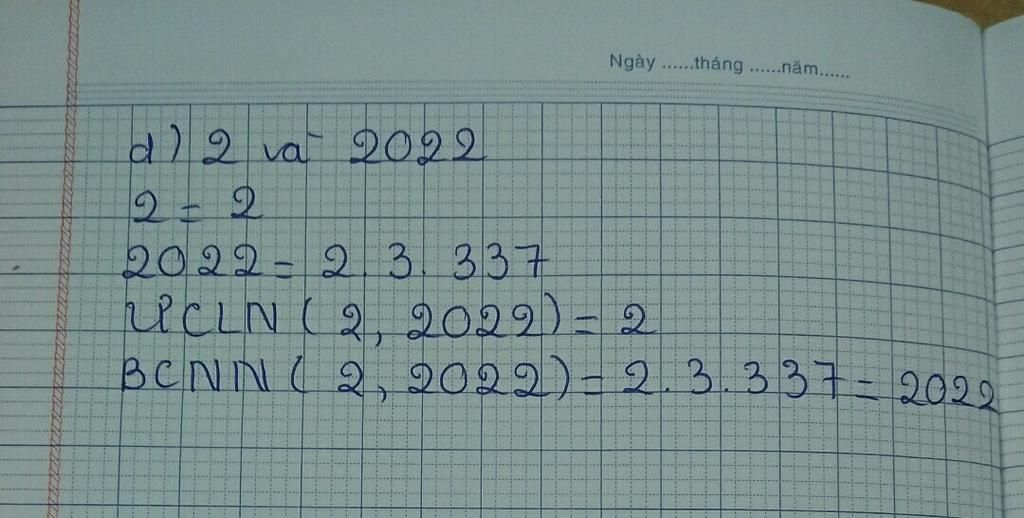 Ngày ......tháng ......năm......
d) 2 và 2022
2 = 2
2022 = 2. 3. 337
ƯCLN ( 2, 2022) = 2
BCNN ( 2, 2022) = 2.3.337 = 2022